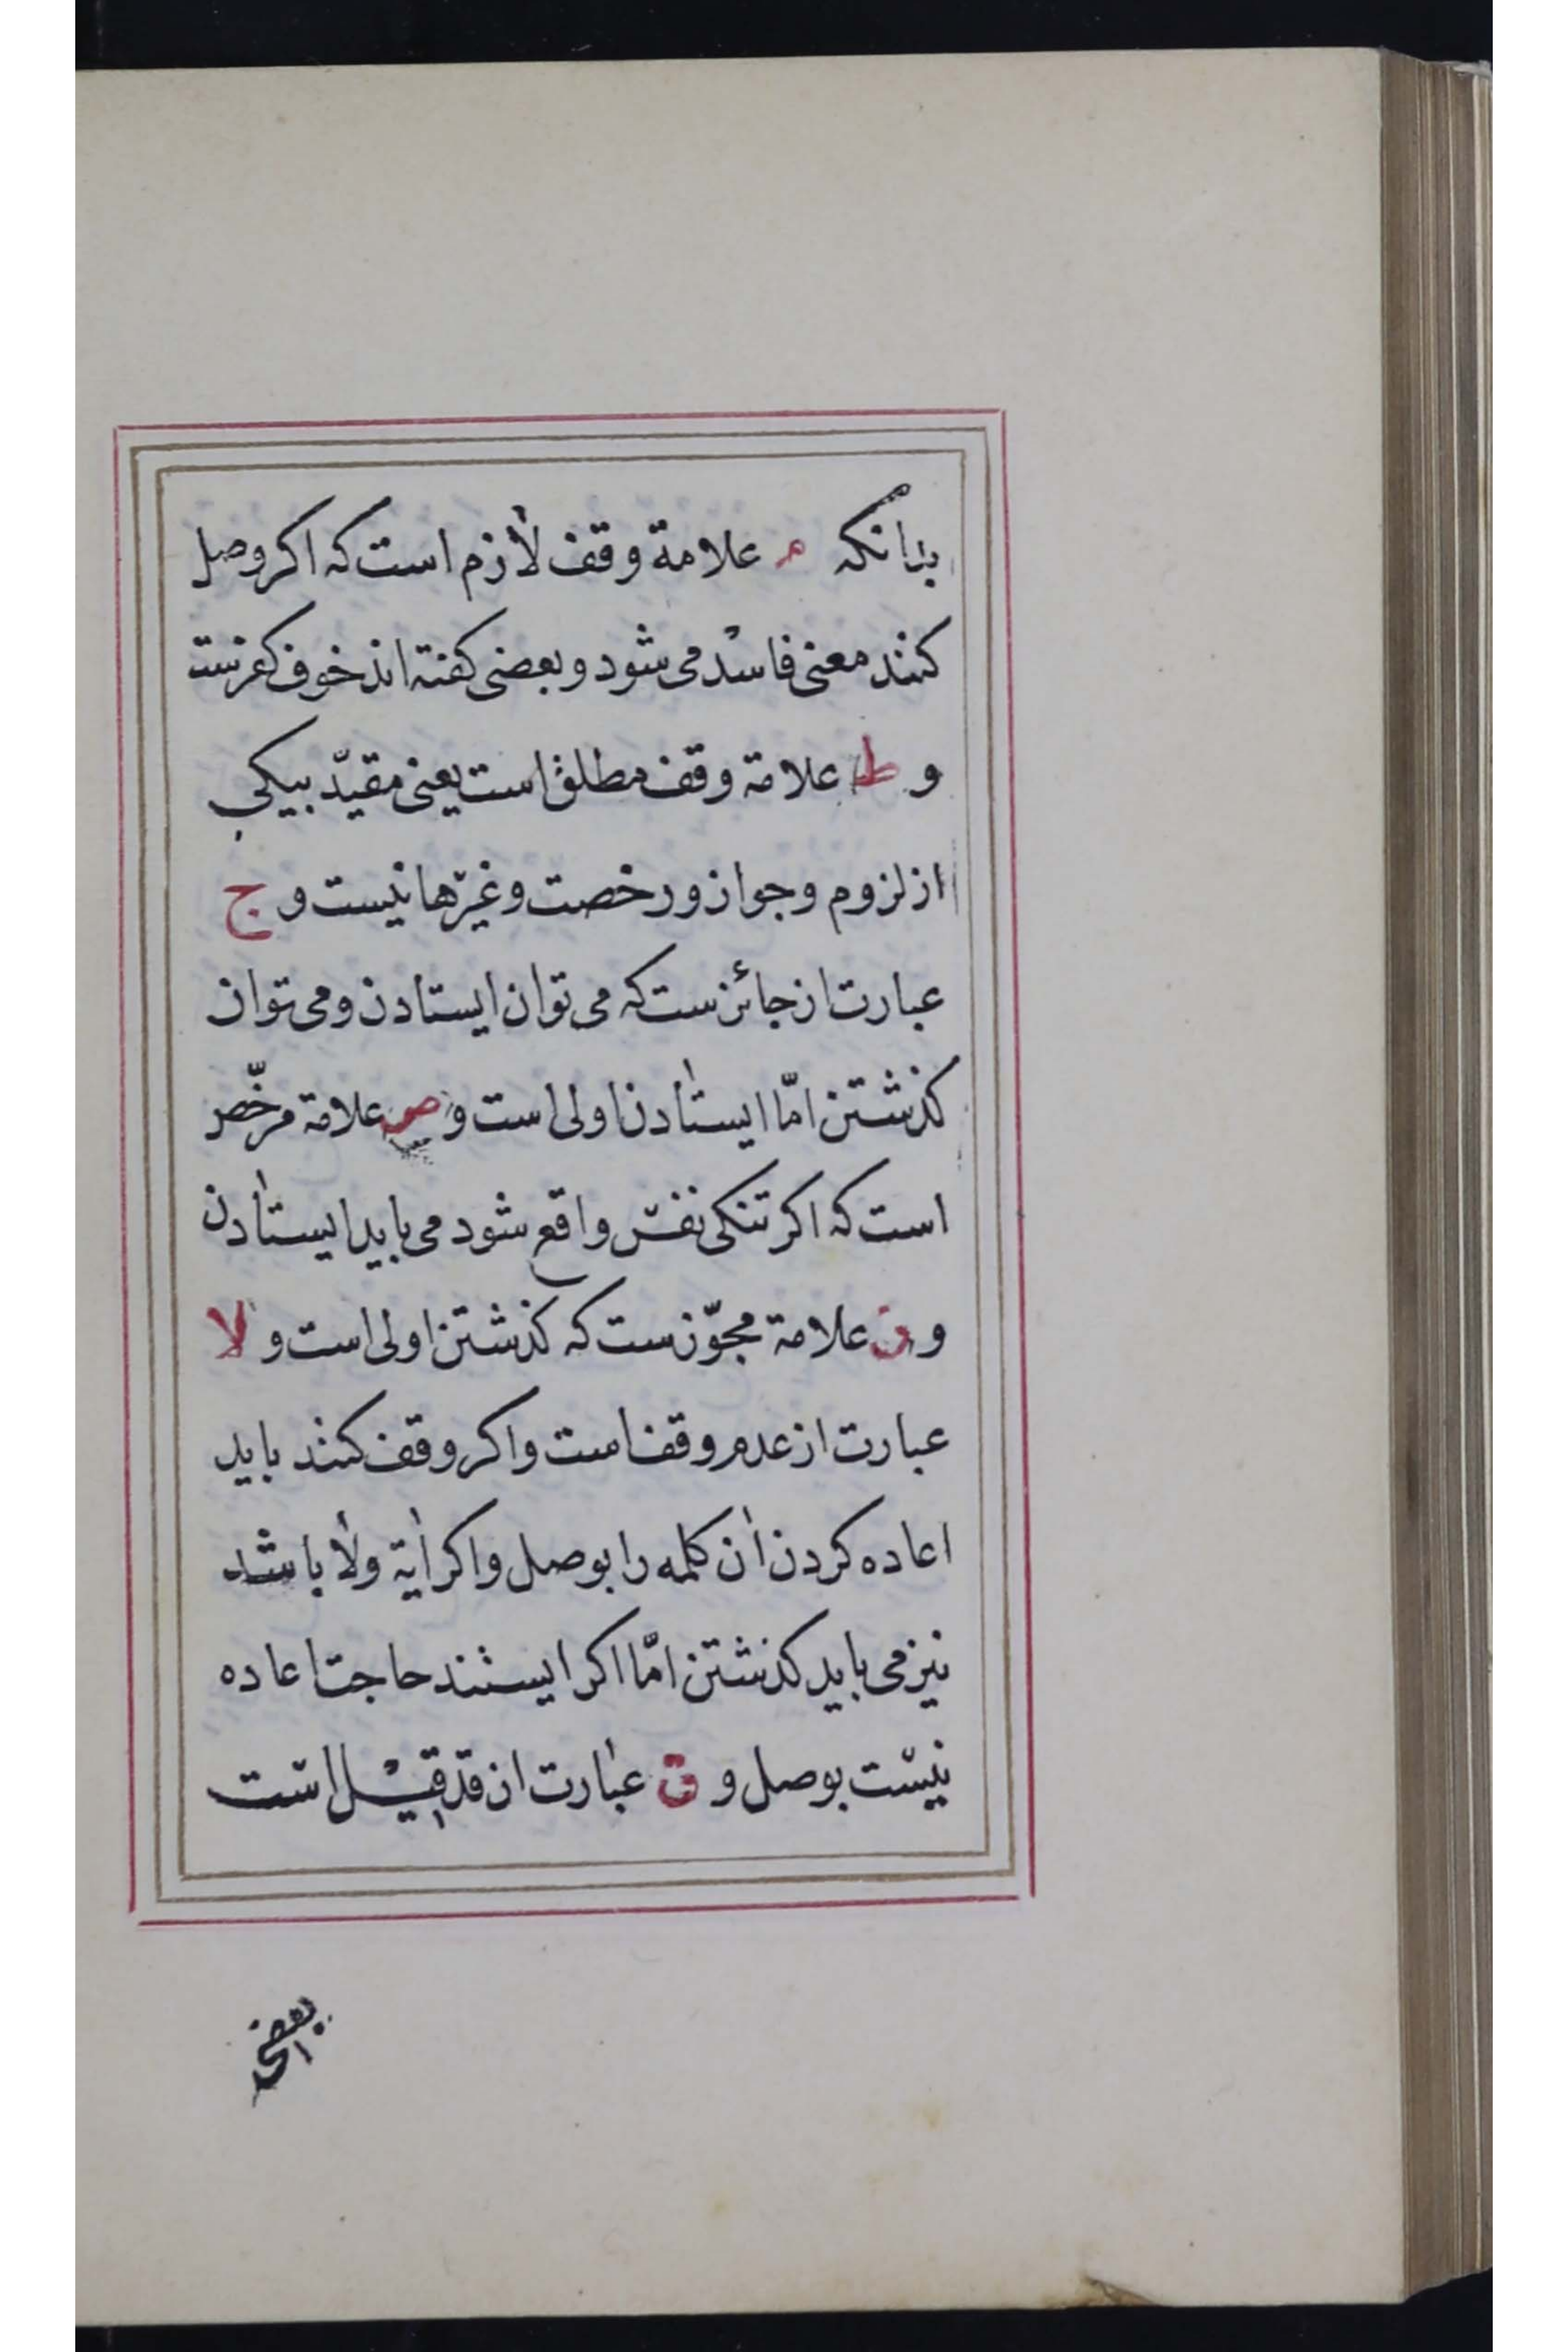 بدانکه م علامة وقف لازم است که اکر وصل
کنند معنی فاسد می شود و بعضی کفته اند خوف کفرست
و ط علامة وقف مطلق است یعنی مقیّد بیکی
از لزوم و جواز و رخصت و غیرها نیست و ج
عبارت از جائزست که می توان ایستادن و می توان
کذشتن امّا ایستادن اولی است و ص علامة مرخّص
است که اکر تنکی نفس واقع شود می باید ایستادن
و ز علامة مجوّزست که کذشتن اولی است و لا
عبارت از عدم وقف است و اکر وقف کنند باید
اعاده کردن ان کلمه را بوصل و اکر ایة ولا باشد
نیز می باید کذشتن امّا اکر ایستند حاجت اعاده
نیست بوصل و ق عبارت از قد قیل است
بعضی